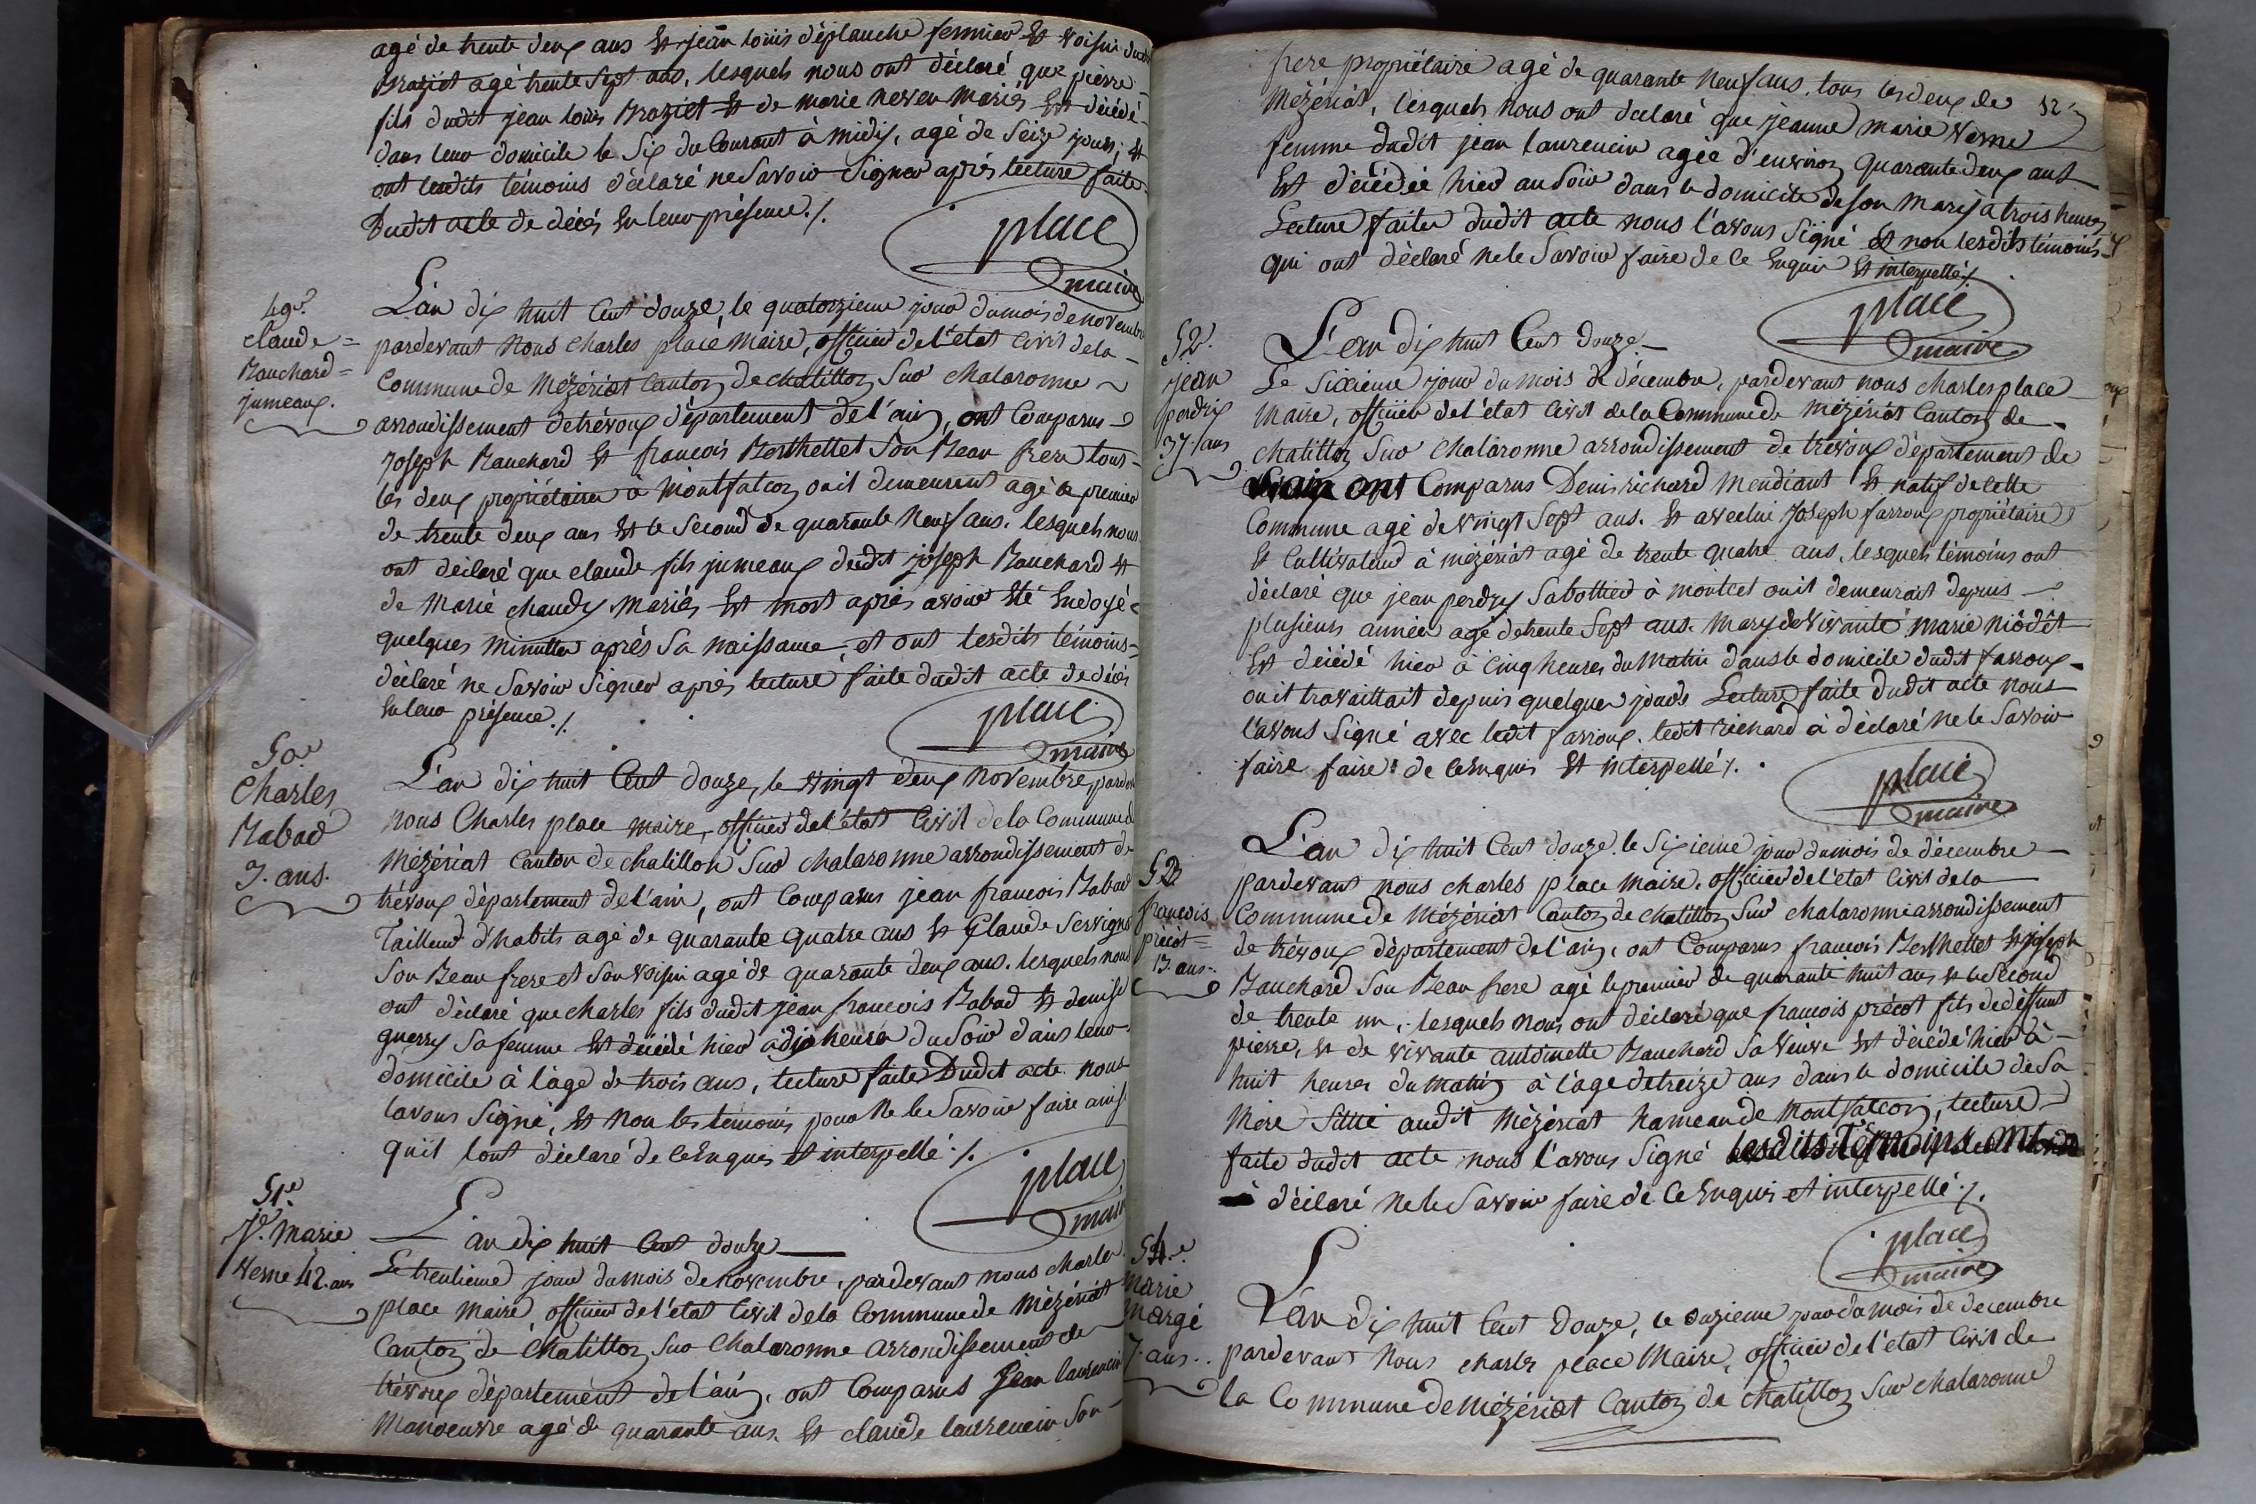 agé de trente deux ans et jean louis déplanche fermier et voisin dudit
Braziet agé trente sept ans, lesquels nous ont déclaré que pierre
fils dudit jean louis Braziet et de marie neven mariés est décédé
dans leur domicile le six du courant à midy, agé de seize jours, et
ont lesdits témoins déclaré ne savoir signer après lecture faite
Dudit acte de décés en leur présence ./.
place
maire
49e.
claude =
Bauchard =
jumeaux.
L'an dix huit cent douze, le quatorzieme jour du mois de novembre
pardevant nous charles place maire, officier de l'état civil de la
commune de Mézériat canton de chatillon sur chalaronne
arrondissement de trévoux département de l'ain, ont comparus
joseph Bauchard et francois Berthettet son Beau frere tous
les deux propriétaires à montfalcon ou il demeurent agé le premier
de trente deux ans et le second de quarante neuf ans. lesquels nous
ont déclaré que claude fils jumeaux dudit joseph Bauchard et
de marie chaudy mariés est mort après avoir été endoyé
quelques minuttes après sa naissance, et ont lesdits témoins =
déclaré ne savoir signer après lecture faite dudit acte de décés
en leur présence ./.
place
maire
50e
Charles
Rabad
3. ans.
L'an dix huit cent douze, le vingt deux novembre, pardevt
nous Charles place maire, officier de l'état civil de la commune de
Mézériat canton de chatillon sur chalaronne arrondissement de
trévoux département de l'ain, ont comparus jean francois Rabad
Tailleur d'habits agé de quarante quatre ans et Claude Servigne
son Beau frere et son voisin agé de quarante deux ans. lesquels nous
ont déclaré que charles fils dudit jean francois Rabad et denise
guerry sa femme est décédé hier à dix heures du soir dans leur
domicile à l'age de trois ans, lecture faite Dudit acte nous
lavons signé, et non les témoins pour ne le savoir faire ainsi
quil lont déclaré de ce enquis et interpellé ./.
place
maire
51e.
je. marie
verne 42. ans
L'an dix huit cent douze
Le trentieme jour du mois de novembre, pardevant nous charles
place maire, officier de l'état civil de la commune de Mézériat
canton de chatillon sur chalaronne arrondissement de
trévoux département de l'ain, ont comparus jean laurencin
manoeuvre agé de quarante ans et claude laurencin son
52
frere propriétaire agé de quarante neuf ans. tous les deux de
Mézériat, lesquels nous ont déclaré que jeanne marie verne
femme dudit jean laurencin agée d'environ quarante deux ans
Est décédée hier au soir dans le domicile de son mary à trois heures
Lecture faite dudit acte nous l'avons signé et non lesdits témoins
qui ont déclaré ne le savoir faire de ce enquis et interpellé ./.
place
maire
52.
jean
perdrix
37. ans
L'an dix huit cent douze
Le sixieme jour du mois de décembre, pardevant nous charles place
maire, officier de l'état civil de la commune de Mézériat canton de
chatillon sur chalaronne arrondissement de trévoux département de
l'ain ont comparus Denis richard mendiant et natif de cette
commune agé de vingt sept ans. et avec lui joseph farroux propriétaire
et cultivateur à mézériat agé de trente quatre ans, lesquels témoins ont
déclaré que jean perdrix sabottier à montcet ou il demeurait depuis
plusieurs année agé de trente sept ans. mary de vivante marie niôdet
est décédé hier à cinq heures du matin dans le domicile dudit farroux
ou il travaillait depuis quelques jours Lecture faite dudit acte nous
l'avons signé avec ledit farroux. ledit richard à déclaré ne le savoir
faire faire de ce enquis et interpellé ./.
place
maire
53
francois
précôt =
13. ans.
L'an dix huit cent douze. le sixieme jour du mois de décembre
pardevant nous charles place maire, officier de l'état civil de la
commune de Mézériat canton de chatillon sur chalaronne arrondissement
de trévoux département de l'ain, ont comparus francois Berthettet et joseph
Bauchard son Beau frere agé le premier de quarante huit ans et le second
de trente un, lesquels nous ont déclaré que francois précot fils de défunt
pierre, et de vivante antoinette Bauchard sa veuve est décédé hier à
huit heures du matin à l'age de treize ans dans le domicile de sa
mère situé audit Mézériat hameau de montfalcon, lecture
faite dudit acte nous l'avons signé lesdits Témoins ont
déclaré ne le savoir faire de ce enquis et interpellé ./.
place
maire
54.e
marie
margé
7. ans.
L'an dix huit cent Douze, le onzieme jour du mois de decembre
pardevant nous charles place maire, officier de l'état civil de
la commune de Mézériat canton de chatillon sur chalaronne